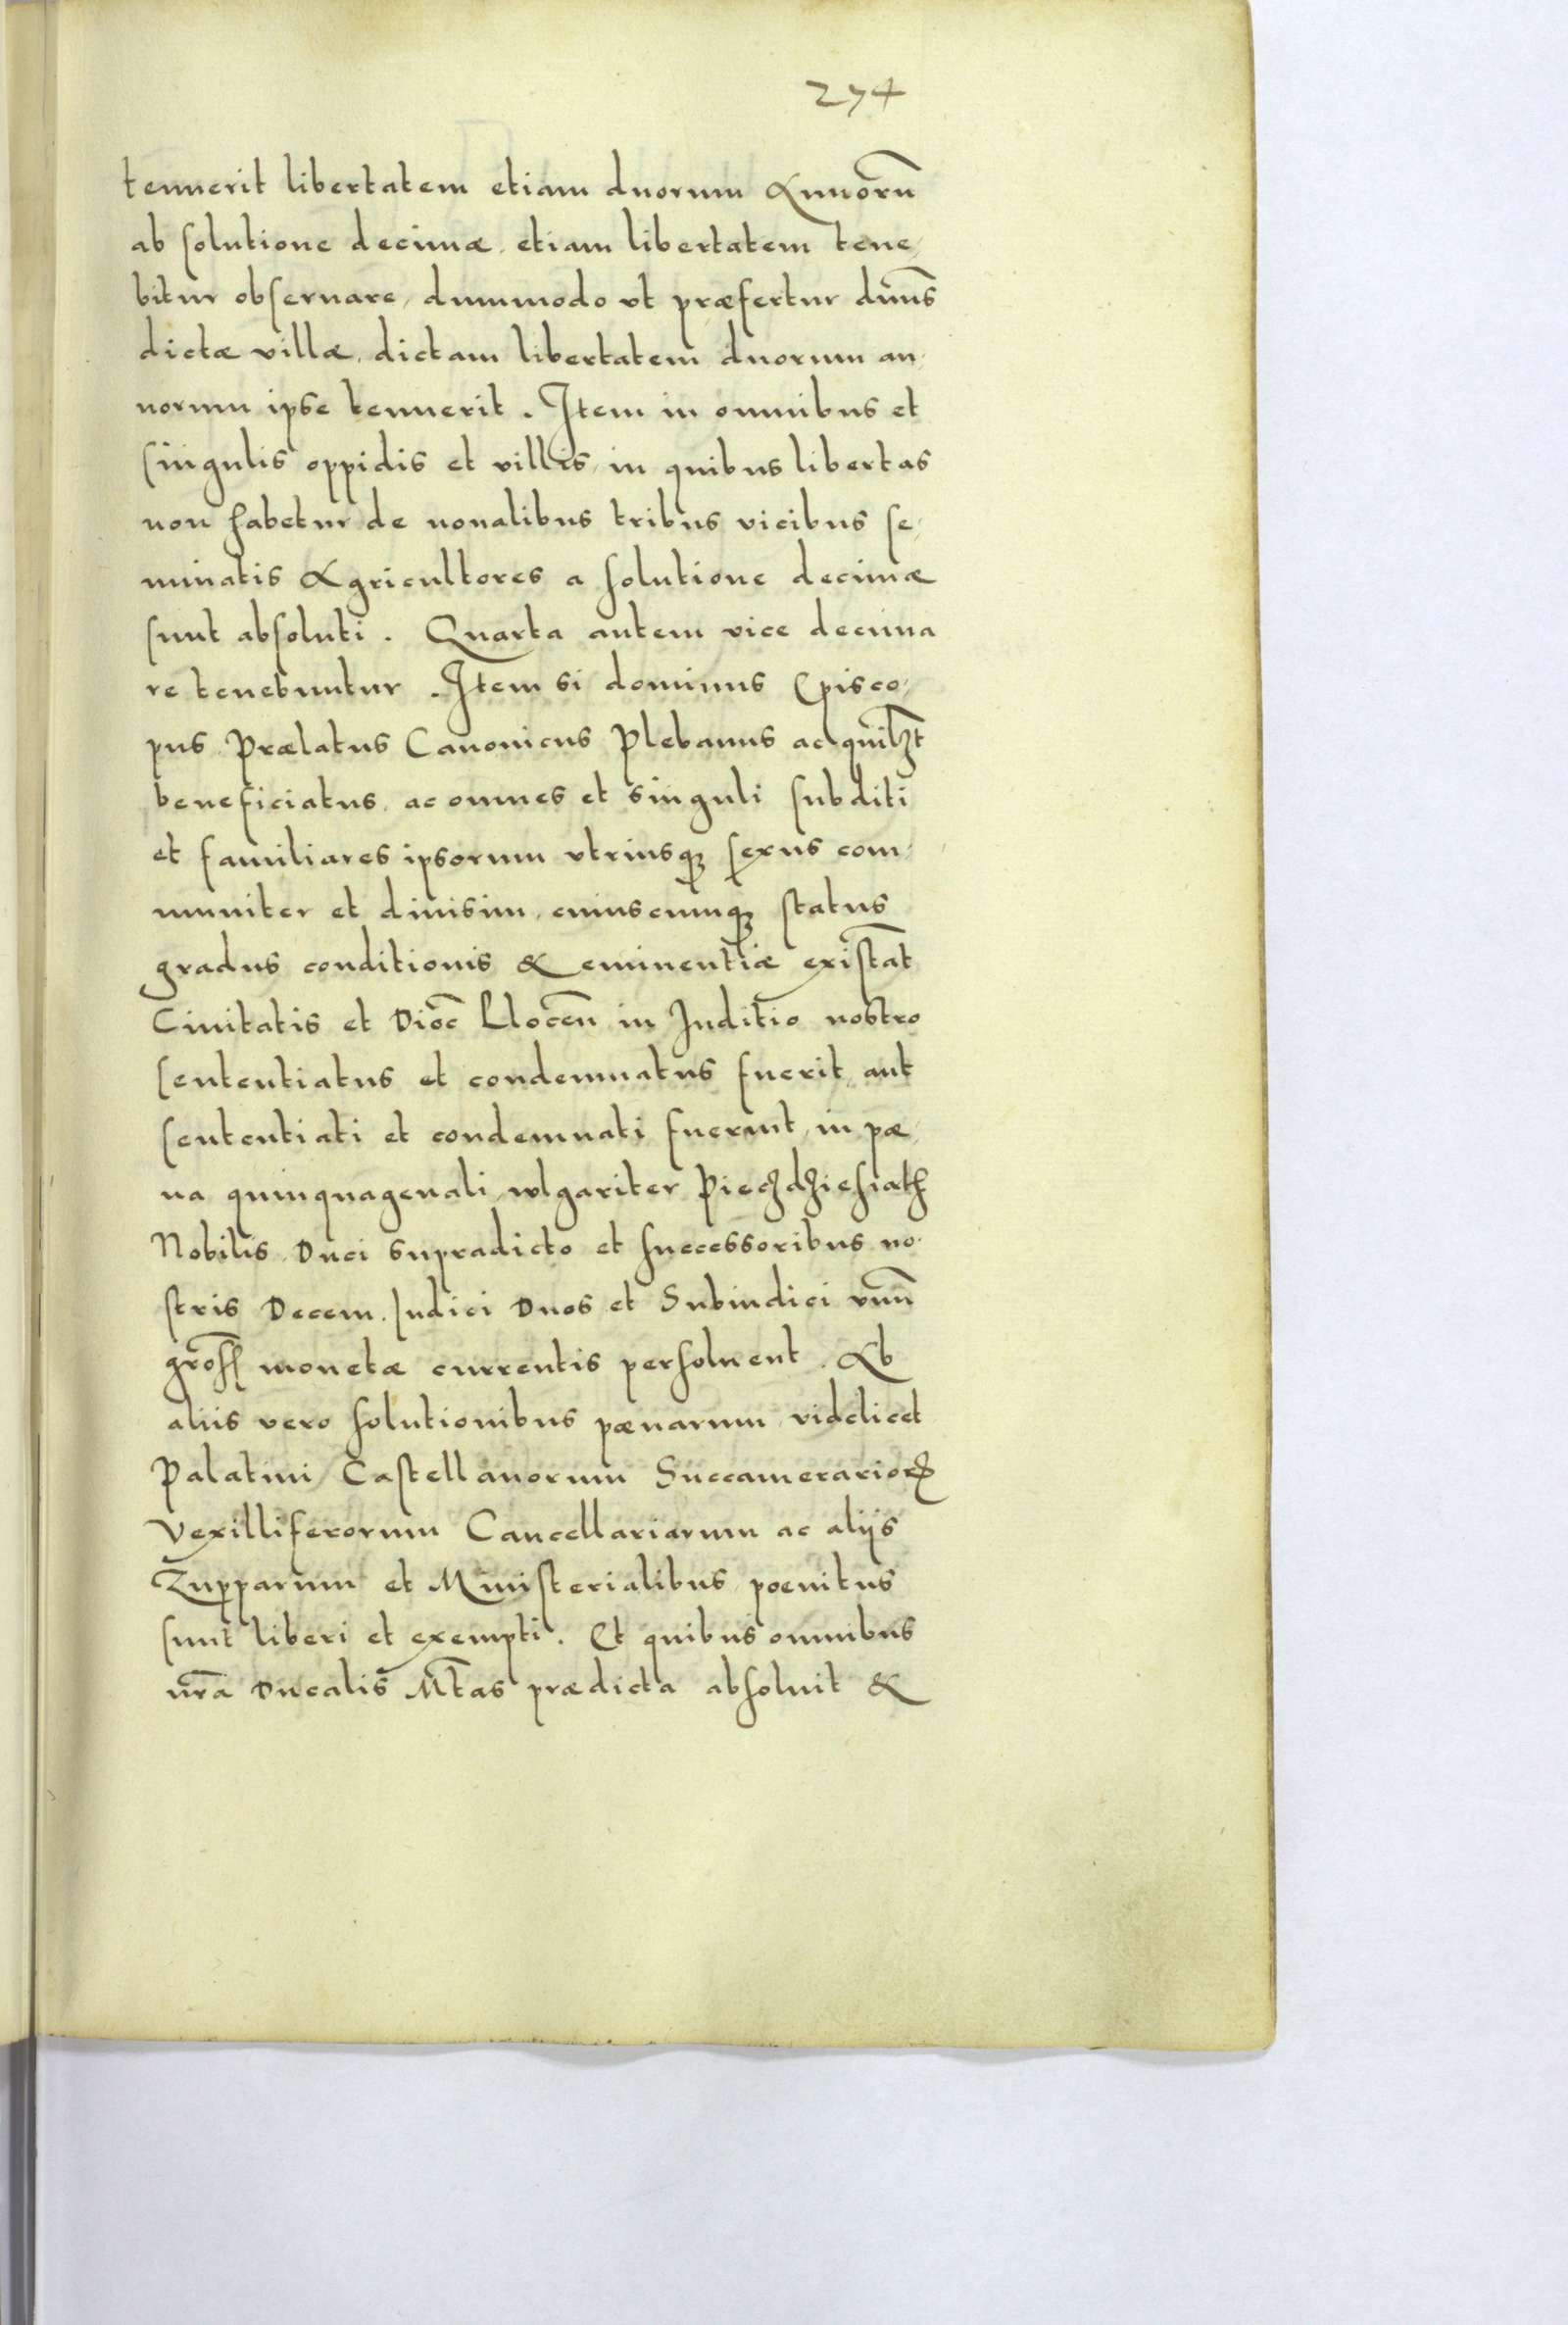 274
tenuerit libertatem etiam duorum Annorū
ab solutione decimæ, etiam libertatem tene,
bitur obseruare, dummodo vt præfertur dūns
dictæ villæ, dictam libertatem duorum an,
norum ipse tenuerit. Item in omnibus et
singulis oppidis et villis, in quibus libertas
non habetur de noualibus tribus vicibus se,
minatis Agricultores a solutione decimæ
sunt absoluti. Quarta autem vice decima
re tenebuntur. Item si dominus Episco,
pus Prælatus Canonicus Plebanus ac quilꝫt
beneficiatus, ac omnes et singuli subditi
et familiares ipsorum vtriusqꝫ sexus com,
muniter et diuisim, cuiuscumqꝫ status
gradus conditionis & eminentiæ existāt
Ciuitatis et Dioc̄ Plocen̄ in Iuditio nostro
sententiatus et condemnatus fuerit, aut
sententiati et condemnati fuerint, in pæ,
na quinquagenali, wlgariter Pieczdziesiath
Nobilis Duci supradicto et successoribus no,
stris Decem. Iudici Duos et Subiudici vnū
gross monetæ currentis persoluent. Ab
aliis vero solutionibus pænarum, videlicet
Palatini, Castellanorum Succamerarioꝝ
Vexilliferorum Cancellariarum ac aliis
Zupparum et Ministerialibus, poenitus
sunt liberi et exempti. Et quibus omnibus
nr̄a Ducalis M̄tas prædicta absoluit &